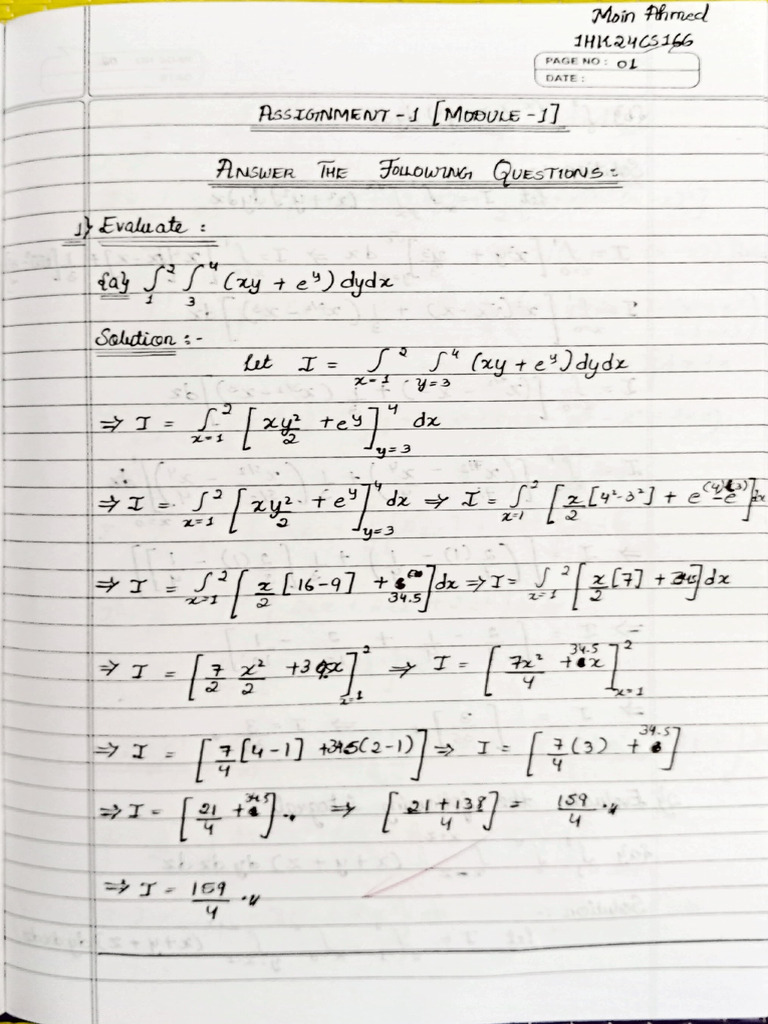 Moin Ahmed
1HK24CS166
PAGE NO : 01
DATE :
ASSIGNMENT - 1 [MODULE - 1]
ANSWER THE FOLLOWING QUESTIONS :
1} Evaluate :
{a} ∫₁² ∫₃⁴ (xy + e^y) dydx
Solution :-
Let I = ∫_{x=1}^{2} ∫_{y=3}^{4} (xy + e^y) dydx
⇒ I = ∫_{x=1}^{2} [xy²/2 + e^y]_{y=3}^{4} dx
⇒ I = ∫_{x=1}^{2} [xy²/2 + e^y]_{y=3}^{4} dx ⇒ I = ∫_{x=1}^{2} [x/2 [4²-3²] + e^{(4)} - e^{(3)}] dx
⇒ I = ∫_{x=1}^{2} [x/2 [16-9] + 34.5] dx ⇒ I = ∫_{x=1}^{2} [x/2 [7] + ] dx
⇒ I = [7/2 x²/2 + x]_{x=1}^{2} ⇒ I = [7x²/4 + 34.5 x]_{x=1}^{2}
⇒ I = [7/4 [4-1] + 34.5(2-1)] ⇒ I = [7/4 (3) + 34.5]
⇒ I = [21/4 + 34.5] .,, ⇒ [21+138/4] = 159/4 .,,
⇒ I = 159/4 .,,